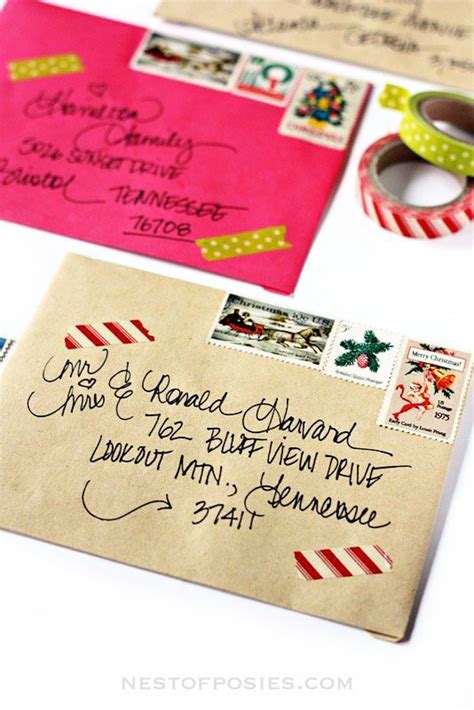 Hamilton
Family
5026 SUNSET DRIVE
Bristol TENNESSEE
76708
CHRISTMAS
Christmas 10c U.S.
Merry Christmas!
US
Postage
1975
Early Card by Louis Prang
Mr &
Mrs Ronald Harvard
762 BLUFF VIEW DRIVE
LOOKOUT MTN., Tennessee
NESTOFPOSIES.COM